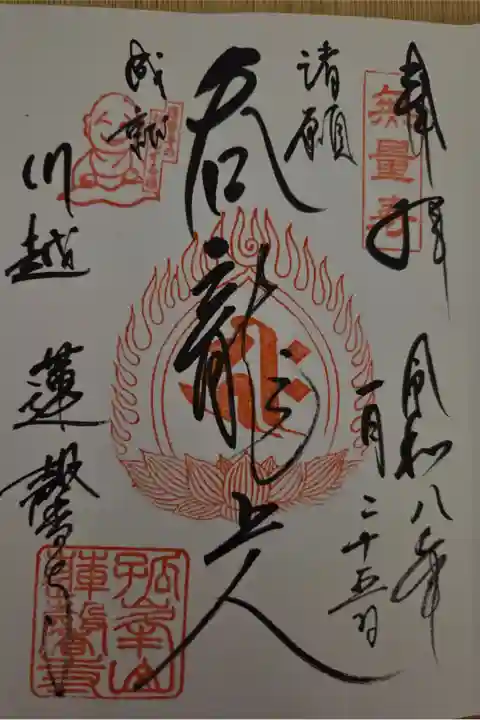 奉拝
無量寿
令和八年
一月二十五日
諸願
呑龍上人
成就
川越
蓮馨寺
孤峯山
蓮馨寺